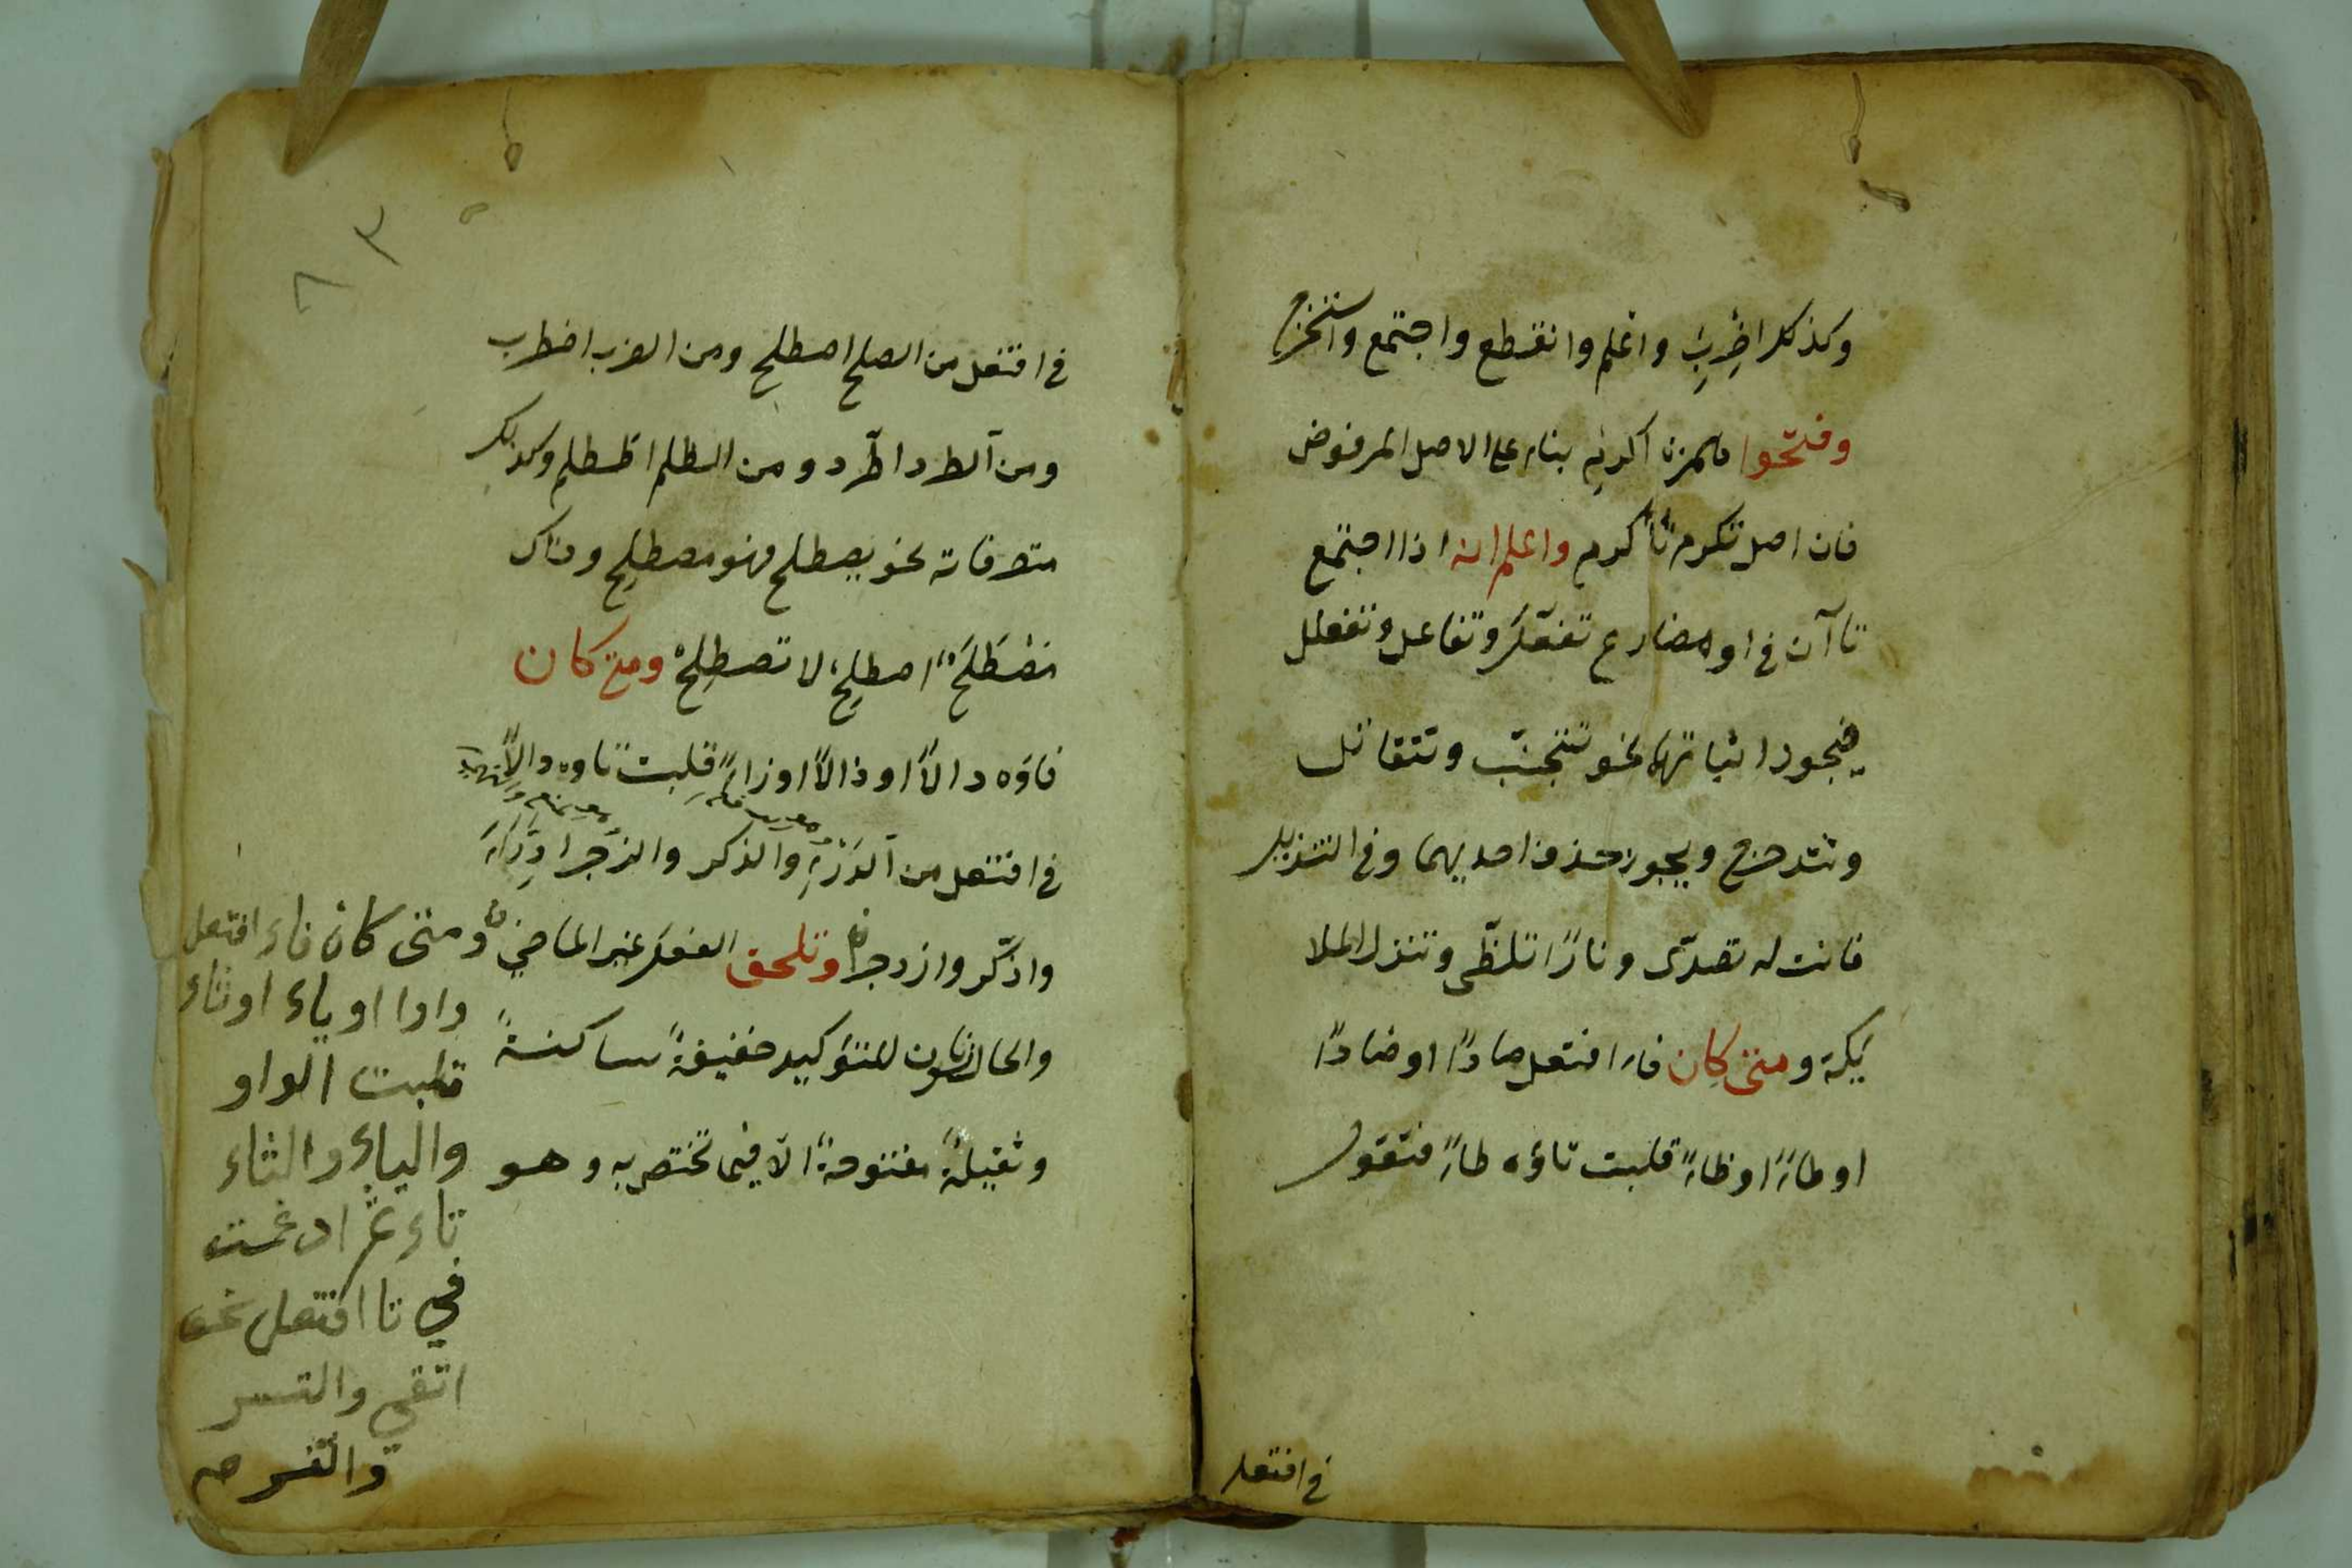 وكذلك اضْرِبْ واعلم وانقطع واجتمع واستخرج
وفتحوا همزة اكرم بناء على الاصل المرفوض
فان اصل تكرم تأكرم واعلم انه اذا اجتمع
تاآن فى اول مضارع تفعّل وتفاعل وتفعلل
فيجوز اثباتهما نحو تتجنّب وتتقاتل
وتتدحرج ويجوز حذف احديهما وفى التنزيل
فانت له تصدّى ونارًا تلظّى وتنزل الملا
ئكة ومتى كان فاء افتعل صادًا او ضادًا
او طاءً او ظاءً قلبت تاؤه طاءً فتقول
فى افتعل
٨٣
فى افتعل من الصلح اصطلح ومن الضرب اضطرب
ومن الطرد اطّرد ومن الظلم اظطلم وكذلك
متصرفاته نحو يصطلح فهو مصطلِح وذاك
مُصْطَلَحٌ اصطلِحْ لا تصطلِحْ ومتى كان
فاؤه دالاً او ذالاً او زاءً قلبت تاوه دالاً
فى افتعل من الدرْء والذكر والزجر ادّرَاَ
واذّكر وازدجر وتلحق الفعل غير الماضي
والحال نونان للتوكيد خفيفةً ساكنةً
وثقيلةً مفتوحةً الاّ فيما تختص به وهو
ومتى كان فاء افتعل
واوا او ياء او ثاء
قلبت الواو
والياء والثاء
تاء ثم ادغمت
في تا افتعل نحو
اتقي واتسر
واتغر صح